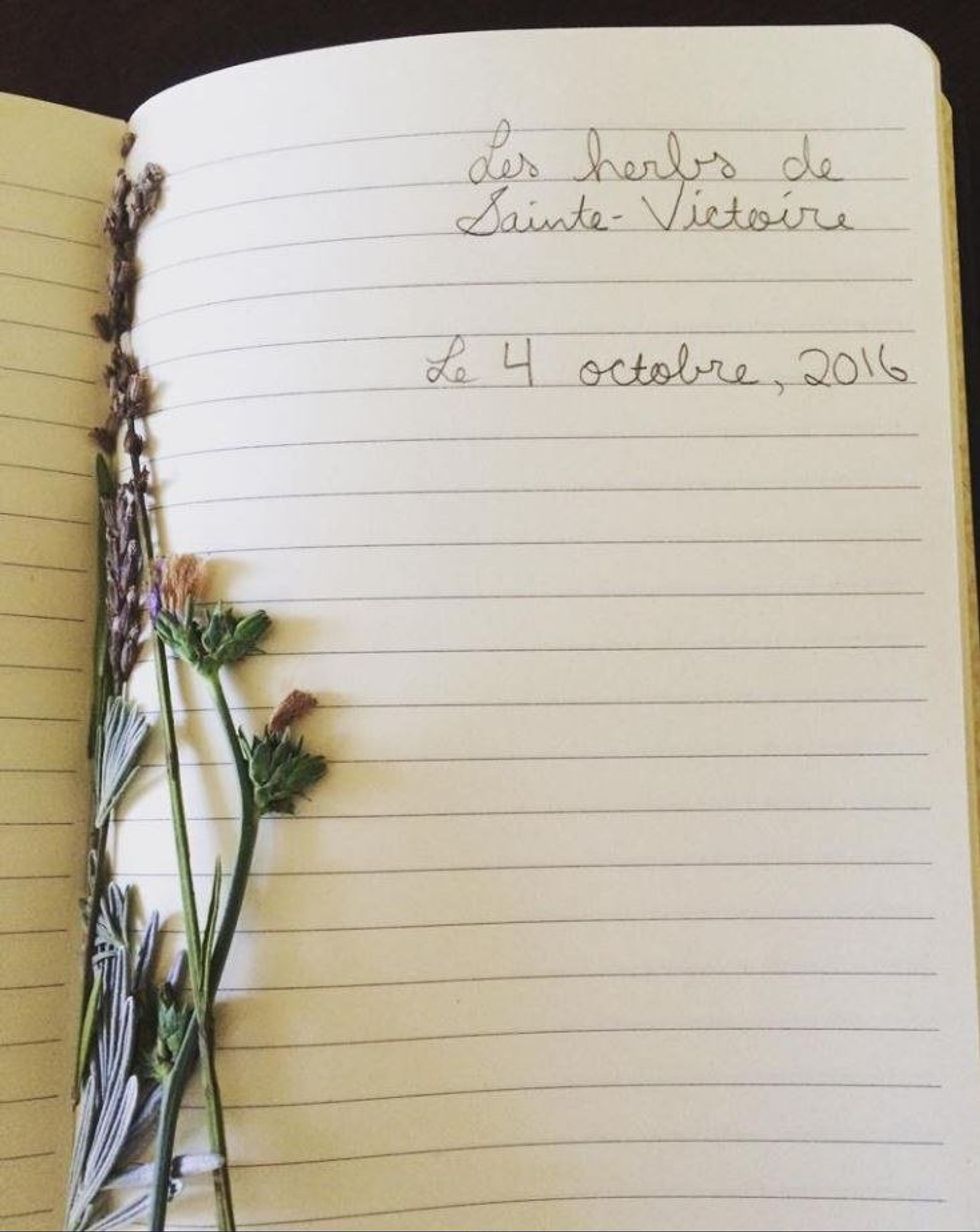 Les herbs de
Sainte-Victoire
Le 4 octobre, 2016